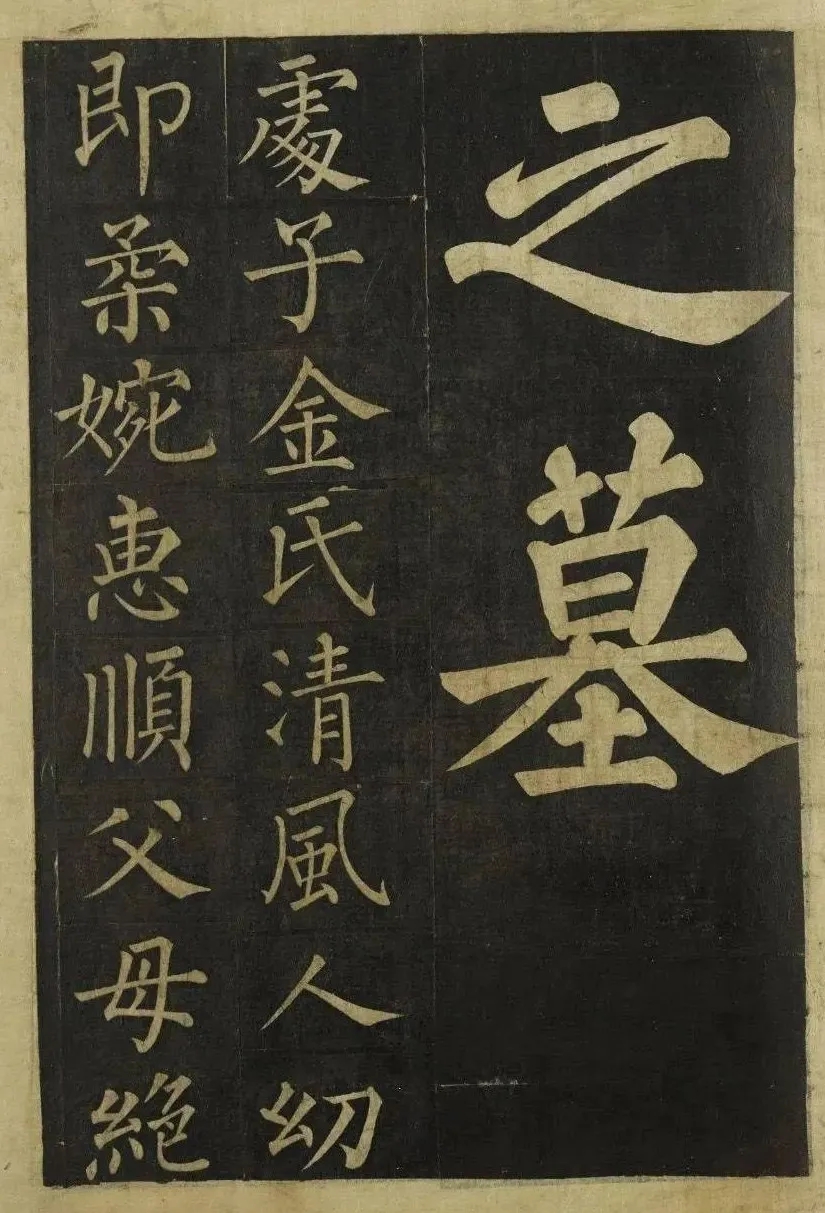 之墓
處子金氏清風人幼
即柔婉恵順父母絶